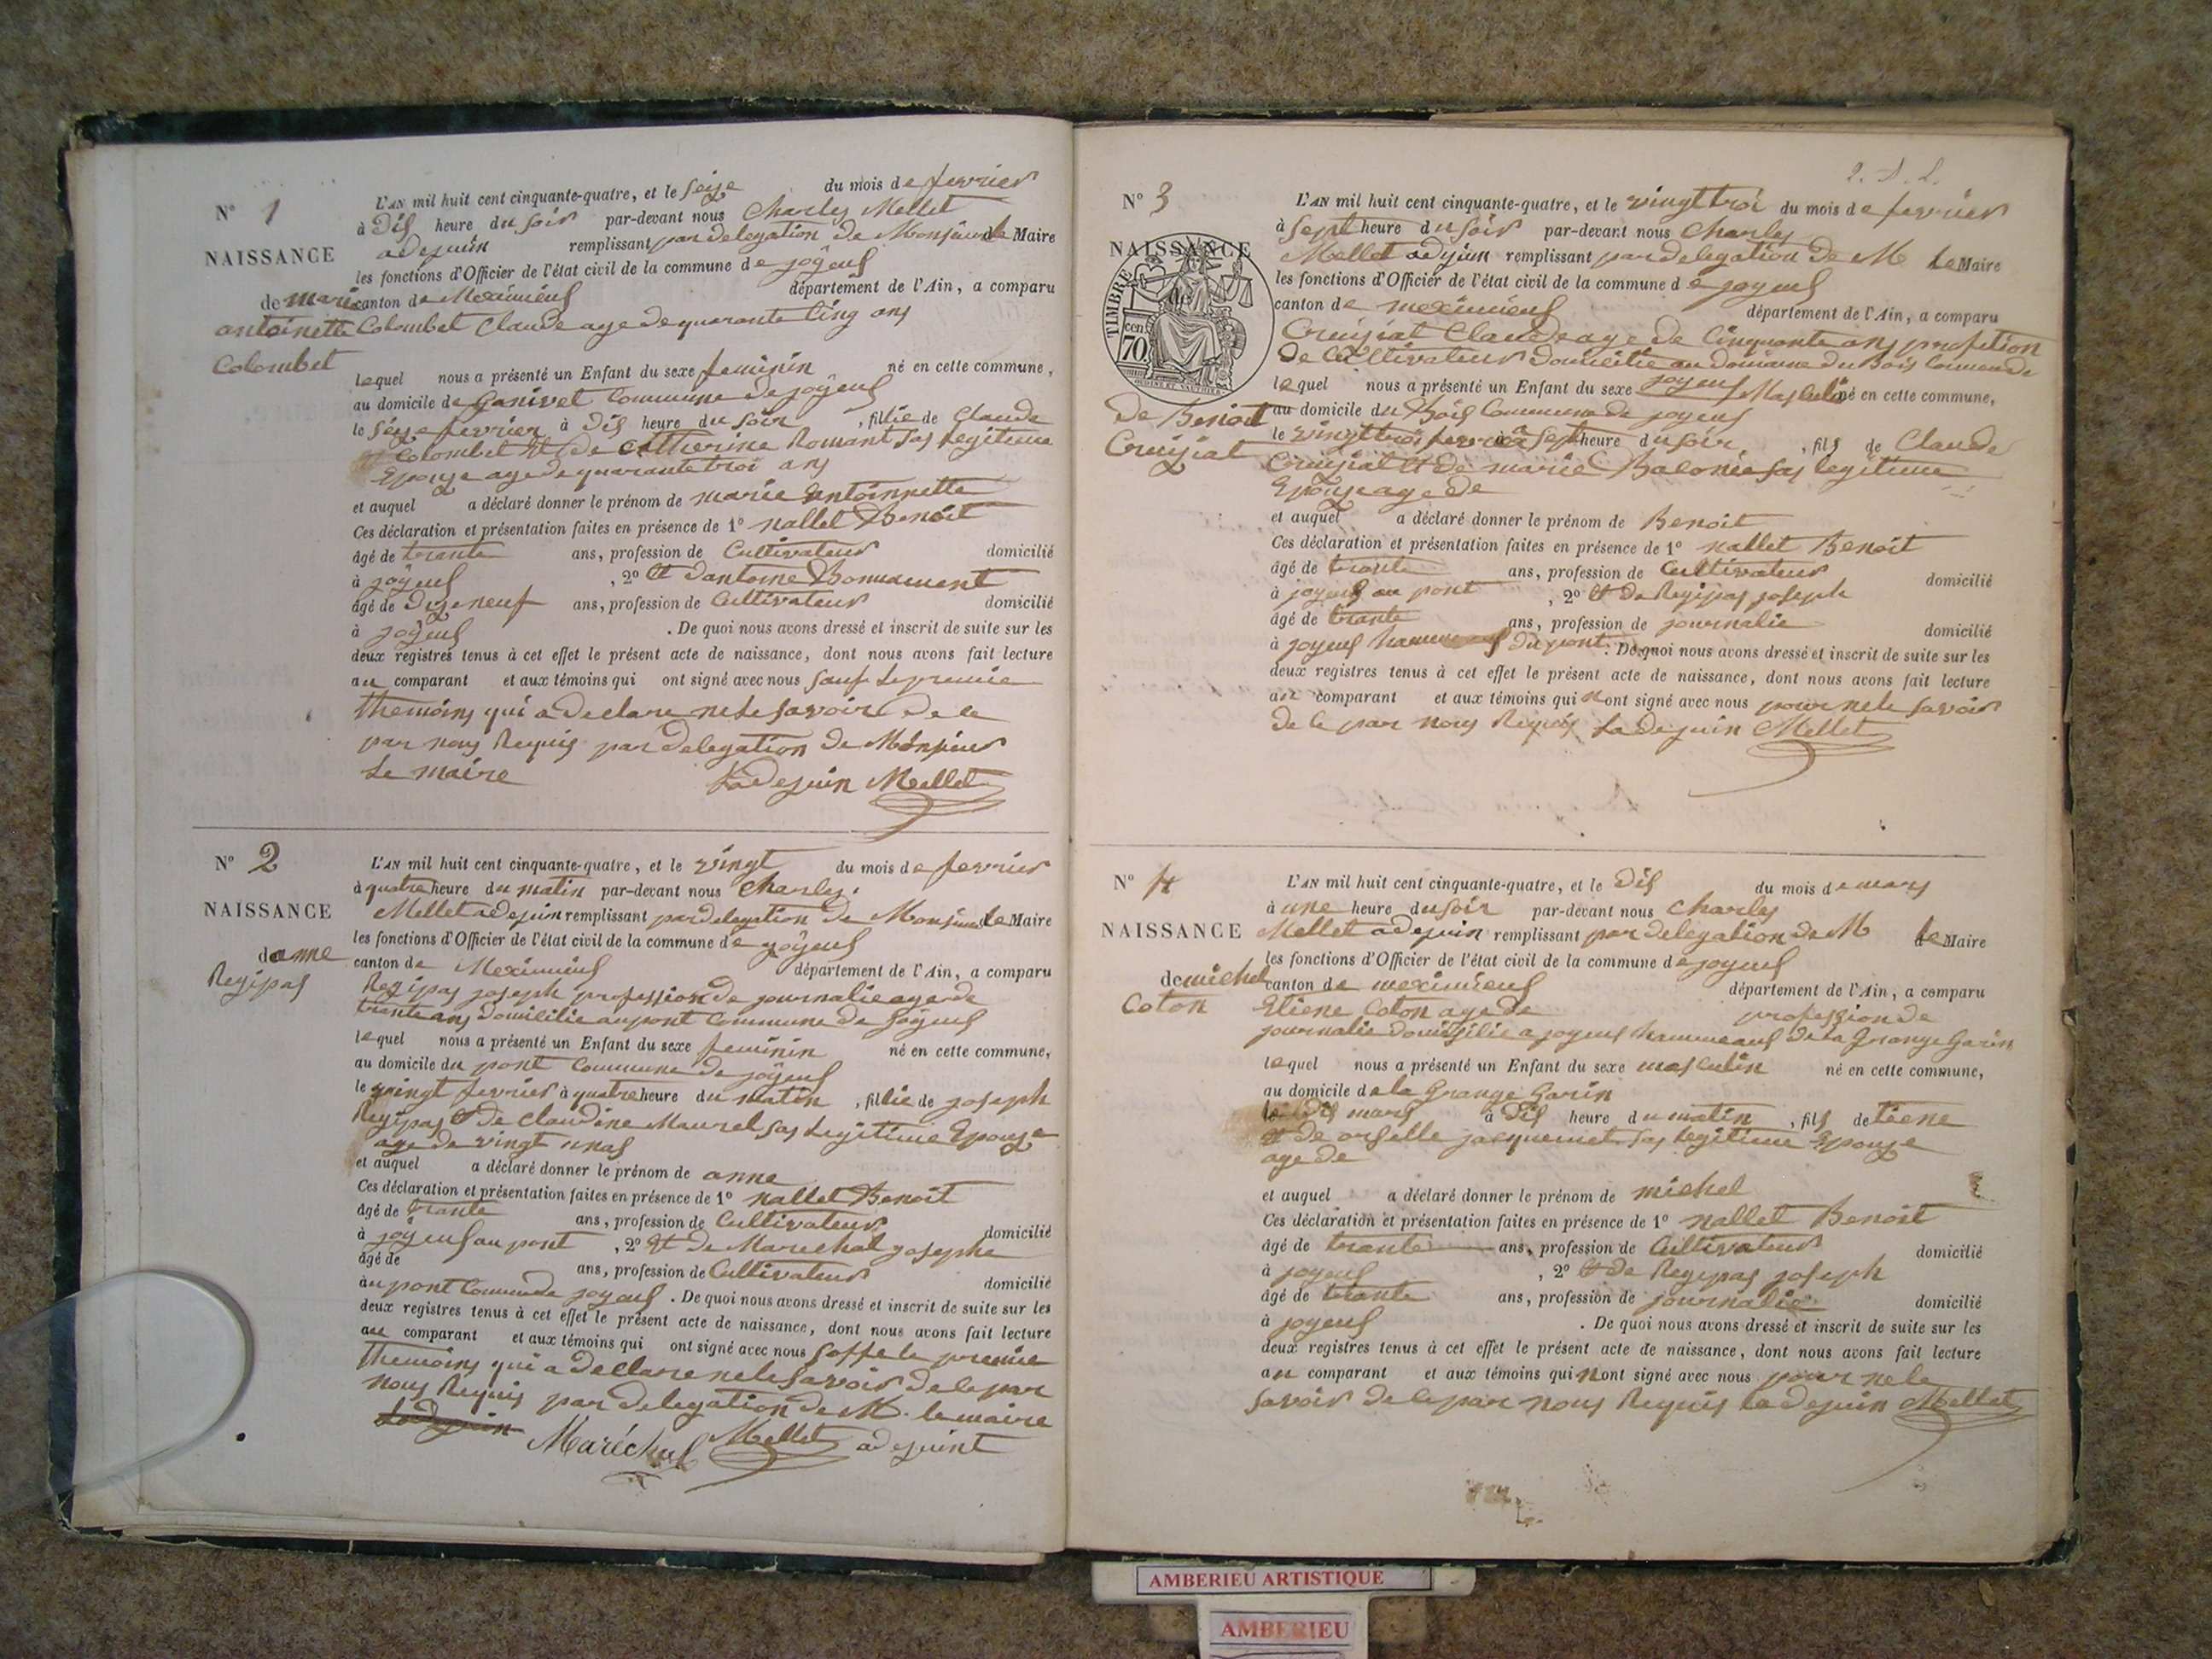 N° 1
NAISSANCE
de marie
antoinette
Colombet
L'AN mil huit cent cinquante-quatre, et le seize du mois de fevrier
à Dis heure du soir par-devant nous Charles Mellet
adejuin remplissant par delegation de Monsieur le Maire
les fonctions d'Officier de l'état civil de la commune de joyeus
canton de Meximieus département de l'Ain, a comparu
Colombet Claude age de quarante Cinq ans
lequel nous a présenté un Enfant du sexe feminin né en cette commune,
au domicile de Ganivet Commune de joyeus
le seize fevrier à Dis heure du soir, fillie de Claude
Colombet Et de Catherine Romant sas legitime
Epouze age de quarante troi ans
et auquel a déclaré donner le prénom de marie Entoinnette
Ces déclaration et présentation faites en présence de 1° nallet Benoit
âgé de trante ans, profession de Cultivateur domicilié
à joyeus, 2° Et dantoine Bonnament
âgé de dizeneuf ans, profession de Cultivateur domicilié
à joyeus. De quoi nous avons dressé et inscrit de suite sur les
deux registres tenus à cet effet le présent acte de naissance, dont nous avons fait lecture
au comparant et aux témoins qui ont signé avec nous sauf le premie
themoins qui a declare ne le savoir de le
par nous Requis par delegation de Monsieur
le maire Ladejuin Mellet
N° 2
NAISSANCE
danne
Regipas
L'AN mil huit cent cinquante-quatre, et le vingt du mois de fevrier
à quatre heure du matin par-devant nous Charles
Mellet adejuin remplissant par delegation de Monsieur le Maire
les fonctions d'Officier de l'état civil de la commune de joyeus
canton de Meximieus département de l'Ain, a comparu
Regipas joseph profession de journalie age de
trante ans domicilie au pont Commune de joyeus
lequel nous a présenté un Enfant du sexe feminin né en cette commune,
au domicile du pont Commune de joyeus
le vingt fevrier à quatre heure du matin, fillie de joseph
Regipas Et de Claudine Maurel sas legitime Epouze
age de vingt unas
et auquel a déclaré donner le prénom de anne
Ces déclaration et présentation faites en présence de 1° nallet Benoit
âgé de trante ans, profession de Cultivateur domicilié
à joyeus au pont, 2° Et de Marechal josephe
âgé de ans, profession de Cultivateur domicilié
au pont Commude joyeus. De quoi nous avons dressé et inscrit de suite sur les
deux registres tenus à cet effet le présent acte de naissance, dont nous avons fait lecture
au comparant et aux témoins qui ont signé avec nous soffe le premie
themoins qui a declare ne le savoir de le par
nous Requis par delegation de M. le maire
Ladejuin Maréchal Mellet adejuint
N° 3
NAISSANCE
TIMBRE
cen.
70.
De Benoit
Cruiziat
L'AN mil huit cent cinquante-quatre, et le vingt troi du mois de fevrier
à sept heure du soir par-devant nous Charles
Mellet adejuin remplissant par delegation de M le Maire
les fonctions d'Officier de l'état civil de la commune de joyeus
canton de meximieus département de l'Ain, a comparu
Cruiziat Claude age de Cinquante ans profetion
de Cultivateur domicilie au domaine du Bois Commude
lequel nous a présenté un Enfant du sexe joyeus Masculin né en cette commune,
au domicile du Bois Commune de joyeus
le vingt troi fevrie à sept heure du soir, fils de Claude
Cruiziat Et de marie Balonie sas legitime
Epouze age de
et auquel a déclaré donner le prénom de Benoit
Ces déclaration et présentation faites en présence de 1° nallet Benoit
âgé de trante ans, profession de Cultivateur domicilié
à joyeus au pont, 2° Et de Regipas joseph
âgé de trante ans, profession de journalie domicilié
à joyeus du pont. De quoi nous avons dressé et inscrit de suite sur les
deux registres tenus à cet effet le présent acte de naissance, dont nous avons fait lecture
au comparant et aux témoins qui nont signé avec nous pour ne le savoir
de le par nous Requis Ladejuin Mellet
N° 4
NAISSANCE
de michel
Coton
L'AN mil huit cent cinquante-quatre, et le Dis du mois de mars
à une heure du soir par-devant nous Charles
Mellet adejuin remplissant par delegation de M le Maire
les fonctions d'Officier de l'état civil de la commune de joyeus
canton de meximieus département de l'Ain, a comparu
Etiene Coton age de profession de
journalie domisilie a joyeus hammeaus de la Grange Garin
lequel nous a présenté un Enfant du sexe masculin né en cette commune,
au domicile de la Grange Garin
le Dis mars à Dis heure du matin, fils detiene
Et de orselle jacquemet sas legitime Epouze
age de
et auquel a déclaré donner le prénom de michel
Ces déclaration et présentation faites en présence de 1° nallet Benoit
âgé de trante ans, profession de Cultivateur domicilié
à joyeus, 2° Et de Regipas joseph
âgé de trante ans, profession de journalie domicilié
à joyeus. De quoi nous avons dressé et inscrit de suite sur les
deux registres tenus à cet effet le présent acte de naissance, dont nous avons fait lecture
au comparant et aux témoins qui nont signé avec nous pour ne le
savoir de le par nous Requis Ladejuin Mellet
AMBERIEU ARTISTIQUE
AMBERIEU